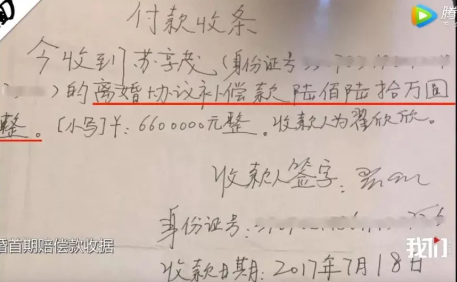 付款收条
今收到苏享茂(身份证号
)的离婚协议补偿款陆佰陆拾万圆
整。[小写]¥:6600000元整。收款人为翟欣欣。
收款人签字:
身份证号:
婚首期赔偿款收据
我们
收款日期:2017年7月18日